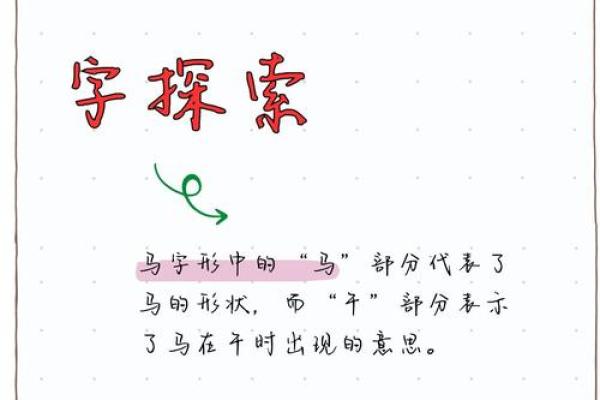 字探索
马字形中的“马”部分代表了
马的形状，而“午”部分表示
了马在午时出现的意思。